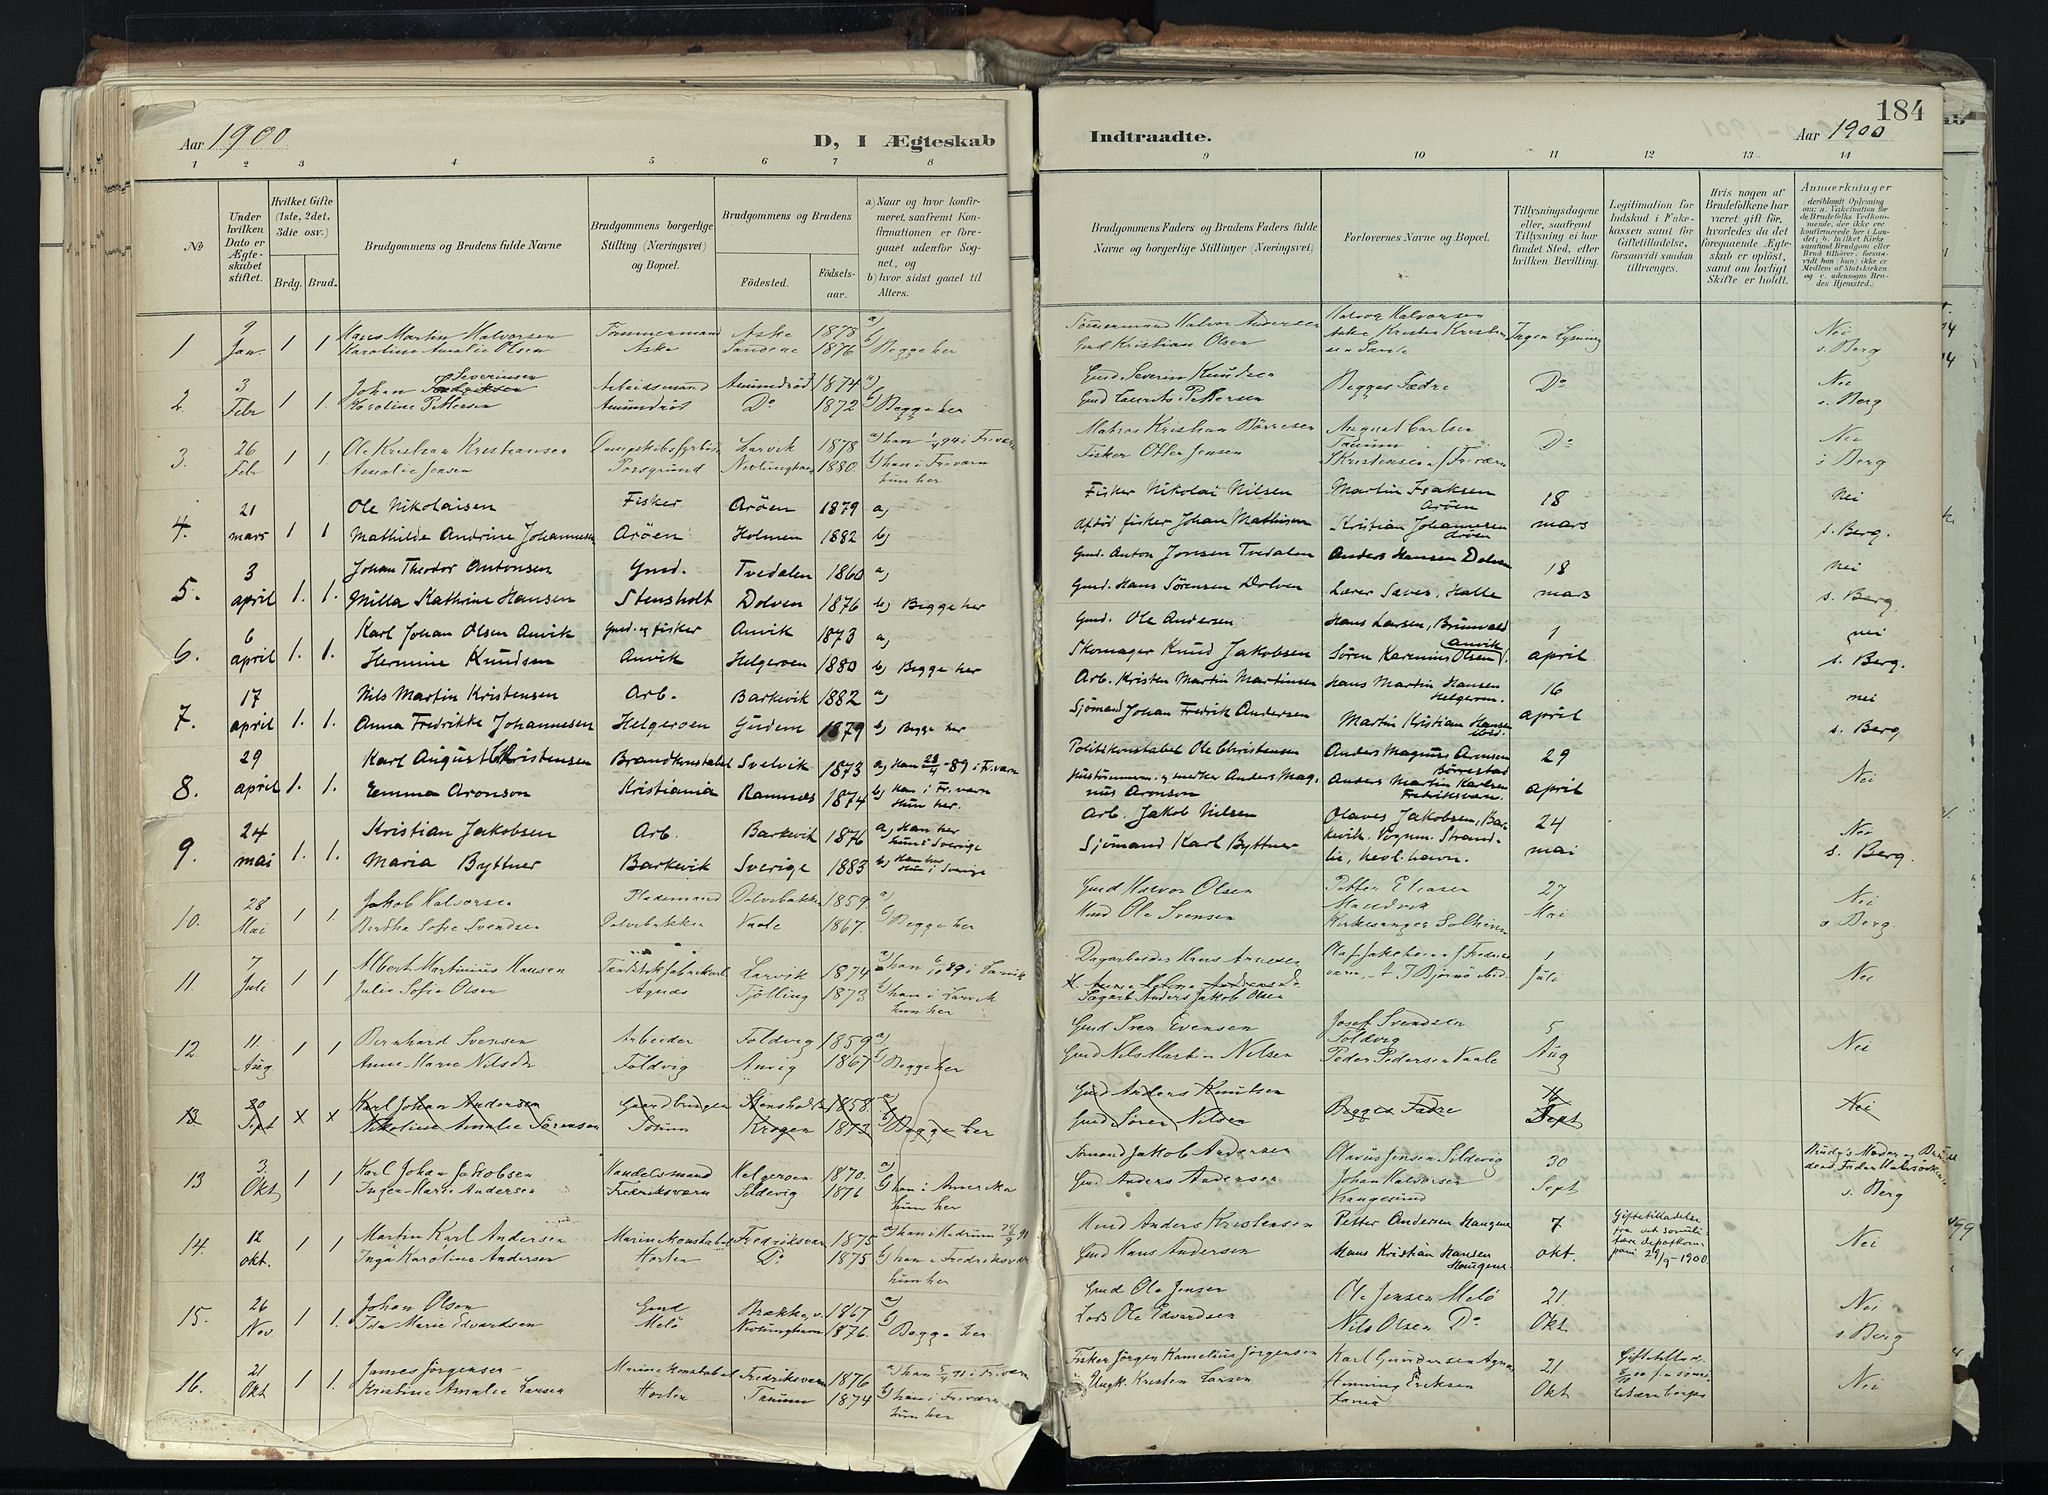 Aar 1900
D, I Ægteskab
Indtraadte.
184
Aar 1900
1 2 3 4 5 6 7 8
9 10 11 12 13 14
№
Under hvilken Dato er Ægteskabet stiftet.
Hvilket Gifte (1ste, 2det, 3die osv.)
Brdg. Brud.
Brudgommens og Brudens fulde Navne
Brudgommens borgerlige Stilling (Næringsvei) og Bopæl.
Brudgommens og Brudens
Födested.
Födselsaar.
a) Naar og hvor konfirmeret, saafremt Konfirmationen er foregaaet udenfor Sognet, og
b) hvor sidst gaaet til Alters.
Brudgommens Faders og Brudens Faders fulde Navne og borgerlige Stillinger (Næringsvei)
Forlovernes Navne og Bopæl.
Tillysningsdagene eller, saafremt Tillysning ei har fundet Sted, efter hvilken Bevilling.
Legitimation for Indskud i Enkekassen samt for Giftetilladelse, forsaavidt saadan tiltrænges.
Hvis nogen af Brudefolkene har været gift för, hvorledes da det foregaaende Ægteskab er oplöst, samt om lovligt Skifte er holdt.
Anmærkninger
1 9 Jan. 1 1 Hans Martin Halvorsen Tømmermand Aske 1878 a)
Karoline Amalie Olsen Aske Sandene 1876 b) Begge her
Tømmermand Halvor Andersen Halvor Halvorsen Aske, Kristen Kristensen Sande Ingen Lysning Nei
Gmd Kristian Olsen s. Berg
2 3 Febr 1 1 Johan Severinsen Arbeidsmand Amundrød 1874 a)
Karoline Pettersen Amundrød Do 1872 b) Begge her
Gmd. Severin Knudsen Begges Fædre Do Nei
Gmd Laurits Pettersen s. Berg
3. 26 Febr 1 1. Ole Kristian Kristiansen Larvik 1878 a) han 1/4 94 i Fr.værn
Amalie Jensen Porsgrund Nevlunghavn 1880. b) han i Fr.værn hun her
Matros Kristian Børresen August Carlsen Tanum Do Nei
Fisker Otter Jensen S Kristensen Fr.værn s Berg
4. 21 mars 1 1 Ole Nikolaisen Fisker Arøen 1879 a)
Mathilde Andrine Johannesen Arøen Holmen 1882 b)
Fisker Nikolai Nilsen Martin Isaksen Arøen 18 mars Nei
Afdød fisker Johan Mathisen Kristian Johannesen Arøen s. Berg.
5. 3 april 1. 1. Johan Theodor Antonsen Gmd. Tvedalen 1860 a)
Milla Kathrine Hansen Stensholt Dolven 1876 b) Begge her
Gmd. Anton Jonsen Tvedalen Anders Hansen Dolven 18 mars nei
Gmd. Hans Sørensen Dolven Lærer Saves. Halle s. Berg.
6. 6 april 1. 1. Karl Johan Olsen Anvik Gmd. og fisker Anvik 1873 a)
Hermine Knudsen Anvik Helgeroen 1880 b) Begge her
Gmd. Ole Andersen Hans Larsen, Brunvald 1 april nei
Skomager Knud Jakobsen Søren Karenius Olsen Anvik s. Berg.
7. 17 april 1. 1. Nils Martin Kristensen Arb. Barkevik 1882 a)
Anna Fredrikke Johannesen Helgeroen Gusdem 1879 b) Begge her
Arb. Kristen Martin Martinsen Hans Martin Hansen Helgeroen. 16 april nei
Sjømand Johan Fredrik Andersen Martin Kristian Hansen ibid. s. Berg
8. 29 april 1. 1. Karl August Christensen Brandkonstabel Svelvik 1873 a) Han 28/4 -89 i Fr.værn
Emma Aronson Kristiania Ramnæs 1874 b) Han i Fr.værn Hun her.
Politikonstabel Ole Christensen Anders Magnus Aronsen Børrestad 29 april Nei
Anders Magnus Aronson Anders Martin Karlsen Fredriksværn.
9. 24 mai 1. 1. Kristian Jakobsen Arb. Barkevik 1876 a) Han her Hun i Sverige
Maria Byttner Barkevik Sverige 1883 b) Han her Hun i Sverige
Arb. Jakob Nilsen Olaves Jakobsen, Barkevik. Vognm. Strandlie, Nevl.havn. 24 mai Nei
Sjømand Karl Byttner s. Berg.
10. 28 Mai 1 1. Jakob Halvorsen Pladsmand Dolvebakken 1859 a)
Bertha Sofie Svendsen Dolvebakken Vaale 1867. b) Begge her
Gmd Halvor Olsen Petter Eliasen Manvik 27 Mai Nei
Gmd Ole Svensen Kirkesanger Solheim s Berg.
11. 7 Juli 1 1 Albert Martinius Hansen Larvik 1874 a) han 6/10 89 i Larvik
Julie Sofie Olsen Agnes Tjølling 1873 b) han i Larvik hun her
Dagarbeider Hans Arnesen Olaf Jakobsen Fredriksværn, A T Bjørnø ibid 1 Juli Nei
Sagarb Anders Jakob Olsen
12. 11. Aug 1 1 Bernhard Svensen Arbeider Foldvig 1859 a)
Anne Marie Nilsdtr Foldvig Anvig 1867 b) Begge her
Gmd Sven Evensen Josef Svendsen Foldvig 5 Aug Nei
Gmd Nils Martin Nilsen Peder Pedersen Vaale
13 30 Sept x x Karl Johan Andersen Gaardbruger Stensholt 1858. a)
Nikoline Amalie Sørensen Torum Krogen 1873 b) Begge her
Gmd Anders Knutsen Begges Fædre 16 Sept Nei
Gmd Søren Nilsen
13 3. Okt 1 1 Karl Johan Jakobsen Handelsmand Helgeroen 1870. a)
Inger Marie Andersen Fredriksværn Sildevig 1876 b) han i Amerika hun her
Sømand Jakob Andersen Olavus Jensen Sildevig 30 Sept
Gmd Anders Andersen Johan Halvorsen Krangesund s. Berg
14. 12 okt. 1 1 Martin Karl Andersen Marinekonstabel Fredriksværn 1875 a) han Hedrum
Inga Karoline Andersen Horten Do 1875 b) han i Fredriksværn hun her
Gmd Anders Kristensen Petter Andersen Haugene 7 okt. Giftetilladelse 29/9-1900 Nei
Gmd Hans Andersen Hans Kristian Hansen Haugene.
15. 26 Nov 1 1. Johan Olsen Gmd Brække 1867 a)
Ida Marie Edvardsen Melø Nevlunghavn 1876. b) Begge her
Gmd Ole Jensen Ole Jensen Melø 21. Okt Nei
Lods Ole Edvardsen Nils Olsen Do s Berg
16. 21 Okt 1 1 James Jørgensen Marinekonstabel Fredriksværn 1876 a) han i Fr.værn
Kristine Amalie Larsen Horten Tanum 1874 b) han i Fr.værn hun her
Fisker Jørgen Kornelius Jørgensen Karl Gundersen Agnes 21 Okt Giftetillad. Nei
Ungk. Kristen Larsen Henning Eriksen